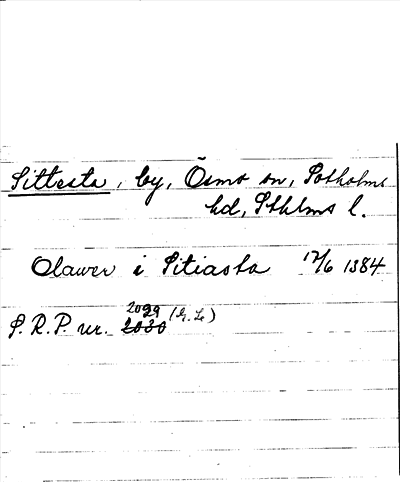 Sittesta, by, Ösmo sn, Sotholms
hd, Sthlms l.
Olawer i Sitiasta 17/6 1384
2099 (G. L.)
S. R. P. nr. 2030